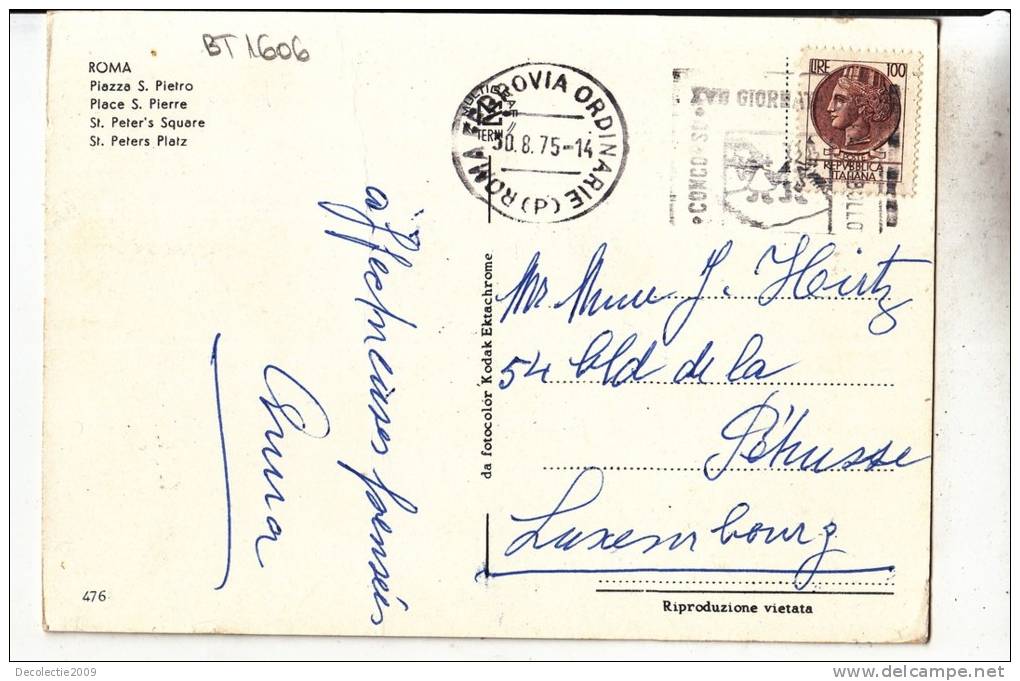 BT 1606
ROMA
Piazza S. Pietro
Place S. Pierre
St. Peter's Square
St. Peters Platz
ROMA FERROVIA ORDINARIE) (P)
TERMI
30.8.75-14
XVII GIORNAT
LIRE 100
POSTE
REPVBBLICA
ITALIANA
affectueuses pensées
Anna
da fotocolor Kodak Ektachrome
Mr Mme J. Hirtz
54 Bld de la
Pétrusse
Luxembourg
476
Riproduzione vietata
Decolectie2009
delcampe.net